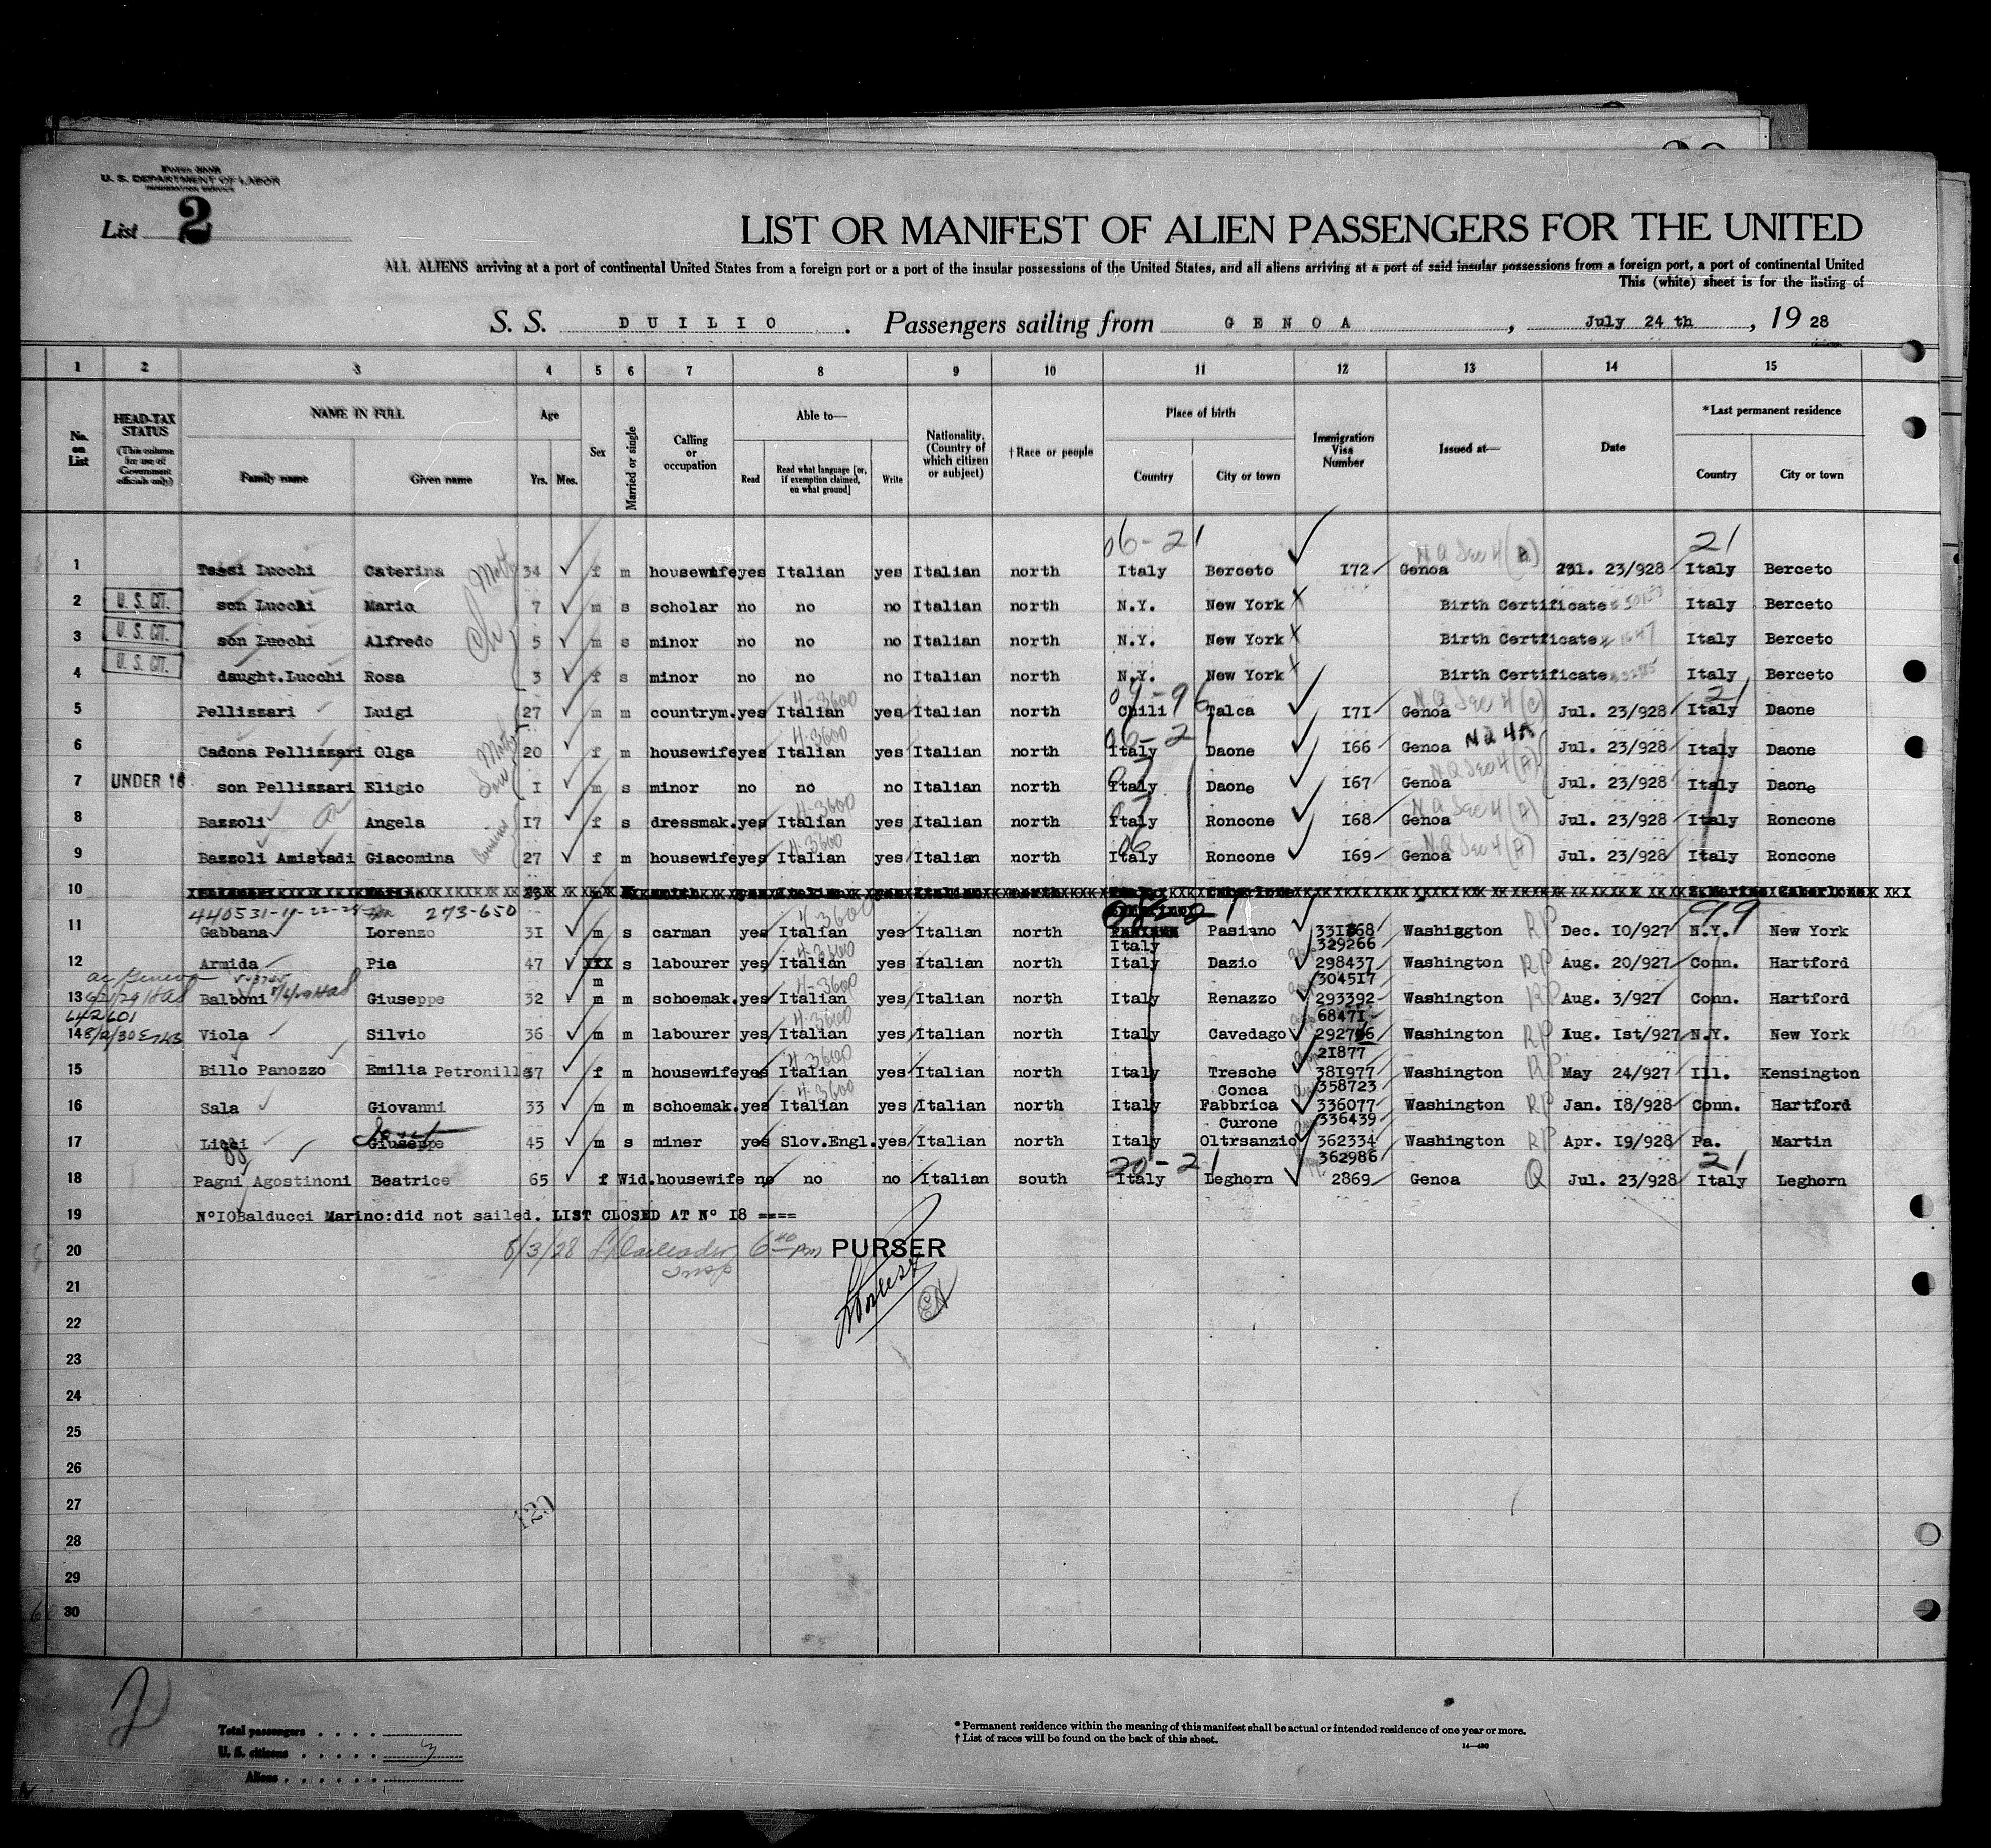 Form 500B
U. S. DEPARTMENT OF LABOR
IMMIGRATION SERVICE
List 2
LIST OR MANIFEST OF ALIEN PASSENGERS FOR THE UNITED
ALL ALIENS arriving at a port of continental United States from a foreign port or a port of the insular possessions of the United States, and all aliens arriving at a port of said insular possessions from a foreign port, a port of continental United
This (white) sheet is for the listing of
S. S. DUILIO . Passengers sailing from GENOA , July 24 th , 19 28
1 2 3 4 5 6 7 8 9 10 11 12 13 14 15
No. on List
HEAD-TAX STATUS (This column for use of Government officials only)
NAME IN FULL Family name Given name
Age Yrs. Mos.
Sex
Married or single
Calling or occupation
Able to— Read Read what language [or, if exemption claimed, on what ground] Write
Nationality. (Country of which citizen or subject)
†Race or people
Place of birth Country City or town
Immigration Visa Number
Issued at—
Date
*Last permanent residence Country City or town
06-21 N Q Sec 4 (A) 21
1 Tassi Lucchi Caterina 34 f m housewife yes Italian yes Italian north Italy Berceto 172 Genoa Jul. 23/928 Italy Berceto
2 U. S. CIT. son Lucchi Mario 7 m s scholar no no no Italian north N.Y. New York Birth Certificate Italy Berceto
3 U. S. CIT. son Lucchi Alfredo 5 m s minor no no no Italian north N.Y. New York Birth Certficate Italy Berceto
4 U. S. CIT. daught.Lucchi Rosa 3 f s minor no no no Italian north N.Y. New York Birth Certificate Italy Berceto
4-3600 N Q Sec 4 (C) 21
5 Pellizzari Luigi 27 m m countrym. yes Italian yes Italian north Chili Talca I7I Genoa Jul. 23/928 Italy Daone
4-3600 06-21 N Q 4A
6 Cadona Pellizzari Olga 20 f m housewife yes Italian yes Italian north Italy Daone I66 Genoa Jul. 23/928 Italy Daone
N Q Sec 4 (A)
7 UNDER 16 son Pellizzari Eligio I m s minor no no no Italian north Italy Daone I67 Genoa Jul. 23/928 Italy Daone
4-3600 N Q Sec 4 (A)
8 Bazzoli Angela I7 f s dressmak. yes Italian yes Italian north Italy Roncone I68 Genoa Jul. 23/928 Italy Roncone
4-3600 N Q Sec 4 (A)
9 Bazzoli Amistadi Giacomina 27 f m housewife yes Italian yes Italian north Italy Roncone I69 Genoa Jul. 23/928 Italy Roncone
10
440531-4-22-28 273-650 4-3600 99
11 Gabbana Lorenzo 3I m s carman yes Italian yes Italian north Italy Pasiano 331368 329266 Washington RP Dec. I0/927 N.Y. New York
4-3600
12 Armida Pia 47 XXX m s labourer yes Italian yes Italian north Italy Dazio 298437 304517 Washington RP Aug. 20/927 Conn. Hartford
4-3600
13 Balboni Giuseppe 32 m m schoemak. yes Italian yes Italian north Italy Renazzo 293392 68471 Washington RP Aug. 3/927 Conn. Hartford
642601 4-3600
14 8/2/30 Viola Silvio 36 m m labourer yes Italian yes Italian north Italy Cavedago 292766 21877 Washington RP Aug. Ist/927 N.Y. New York
4-3600
15 Billo Panozzo Emilia Petronilla 37 f m housewife yes Italian yes Italian north Italy Tresche Conca 381977 358723 Washington RP May 24/927 Ill. Kensington
4-3600
16 Sala Giovanni 33 m m schoemak. yes Italian yes Italian north Italy Fabbrica Curone 336077 336439 Washington RP Jan. I8/928 Conn. Hartford
17 Liggi Giuseppe 45 m s miner yes Slov.Engl. yes Italian north Italy Oltrsanzio 362334 362986 Washington RP Apr. I9/928 Pa. Martin
20-21 21
18 Pagni Agostinoni Beatrice 65 f Wid. housewife no no no Italian south Italy Leghorn 2869 Genoa Q Jul. 23/928 Italy Leghorn
19 N°I0Balducci Marino:did not sailed. LIST CLOSED AT N° I8 ====
20 8/3/28 Insp 6 40 pm PURSER
21
22
23
24
25
26
27
28
29
30
120
2
Total passengers
U. S. citizens 3
Aliens
* Permanent residence within the meaning of this manifest shall be actual or intended residence of one year or more.
† List of races will be found on the back of this sheet.
14—430